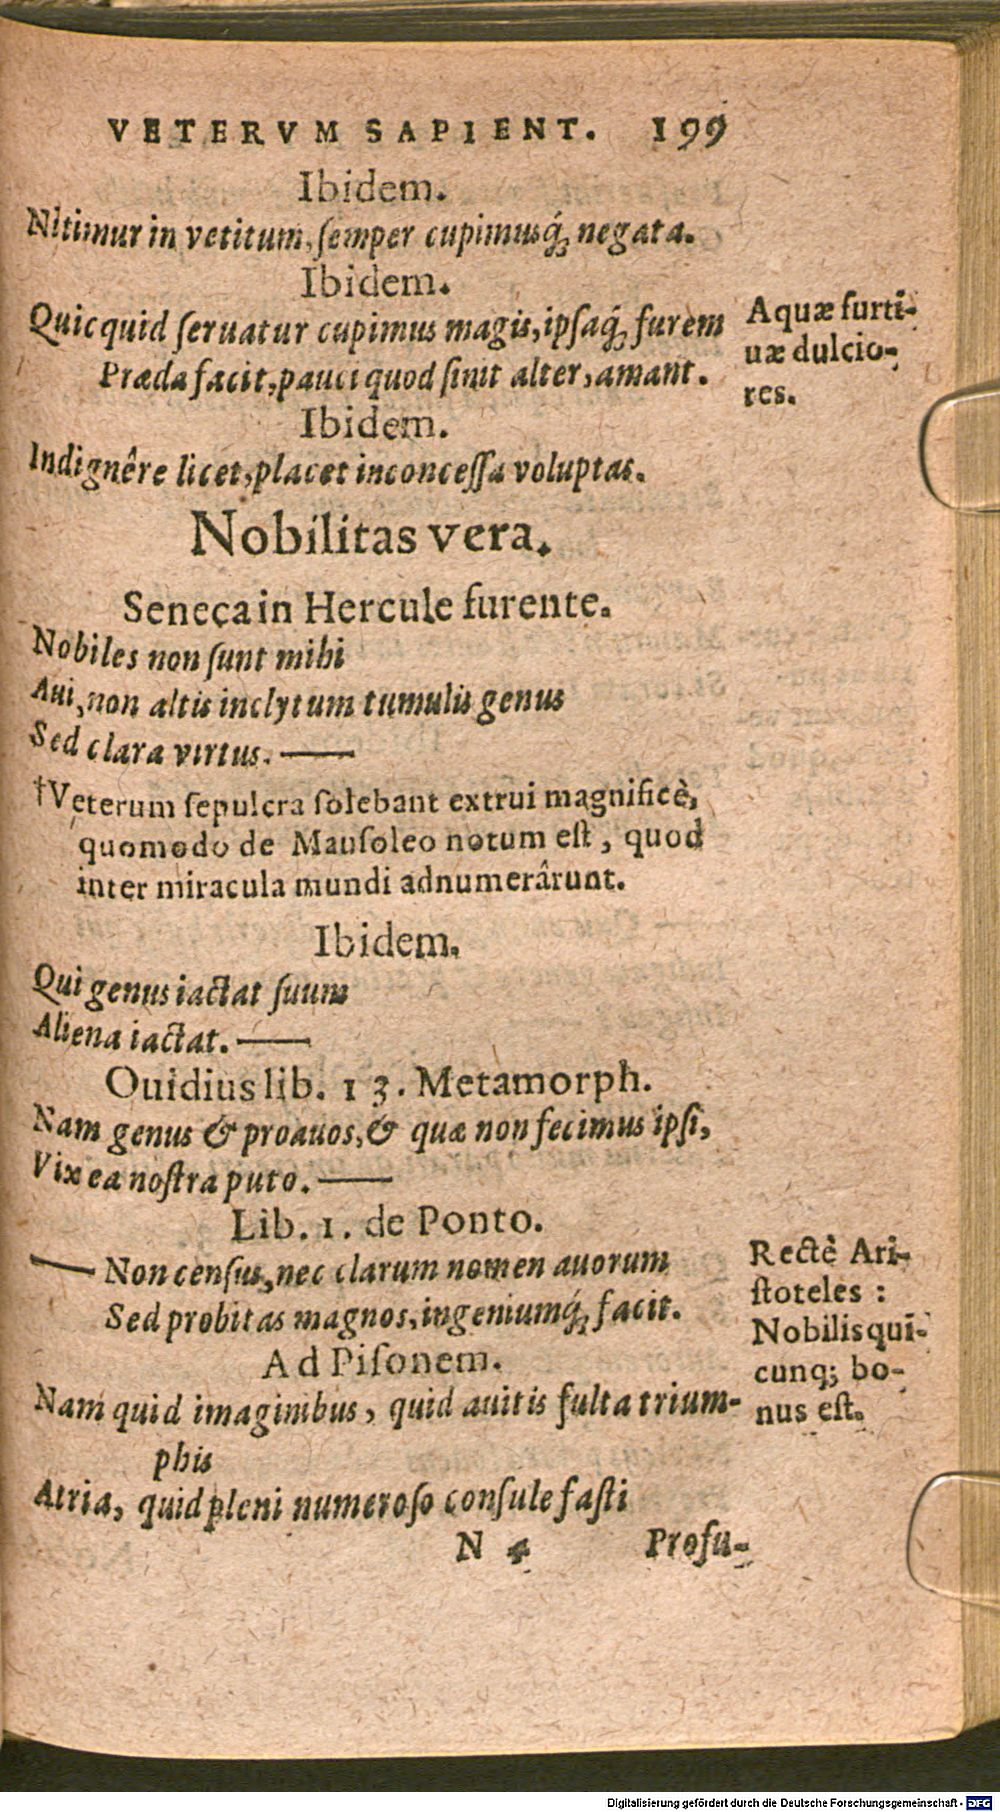 VETERVM SAPIENT. 199
Ibidem.
Nitimur in vetitum, semper cupimusq́; negata.
Ibidem.
Quicquid seruatur cupimus magis, ipsaq́; furem
Præda facit, pauci quod sinit alter, amant.
Aquæ furti-
uæ dulcio-
res.
Ibidem.
Indignêre licet, placet inconcessa voluptas.
Nobilitas vera.
Seneca in Hercule furente.
Nobiles non sunt mihi
Aui, non altis inclytum tumulis genus
Sed clara virtus. ——
†Veterum sepulcra solebant extrui magnificè,
quomodo de Mausoleo notum est, quod
inter miracula mundi adnumerârunt.
Ibidem.
Qui genus iactat suum
Aliena iactat. ——
Ouidius lib. 13. Metamorph.
Nam genus & proauos, & quæ non fecimus ipsi,
Vix ea nostra puto. ——
Lib. 1. de Ponto.
—— Non census, nec clarum nomen auorum
Sed probitas magnos, ingeniumq́; facit.
Rectè Ari-
stoteles :
Nobilis qui-
cunq; bo-
nus est.
Ad Pisonem.
Nam quid imaginibus, quid auitis fulta trium-
phis
Atria, quid pleni numeroso consule fasti
N 4 Profu-
Digitalisierung gefördert durch die Deutsche Forschungsgemeinschaft - DFG